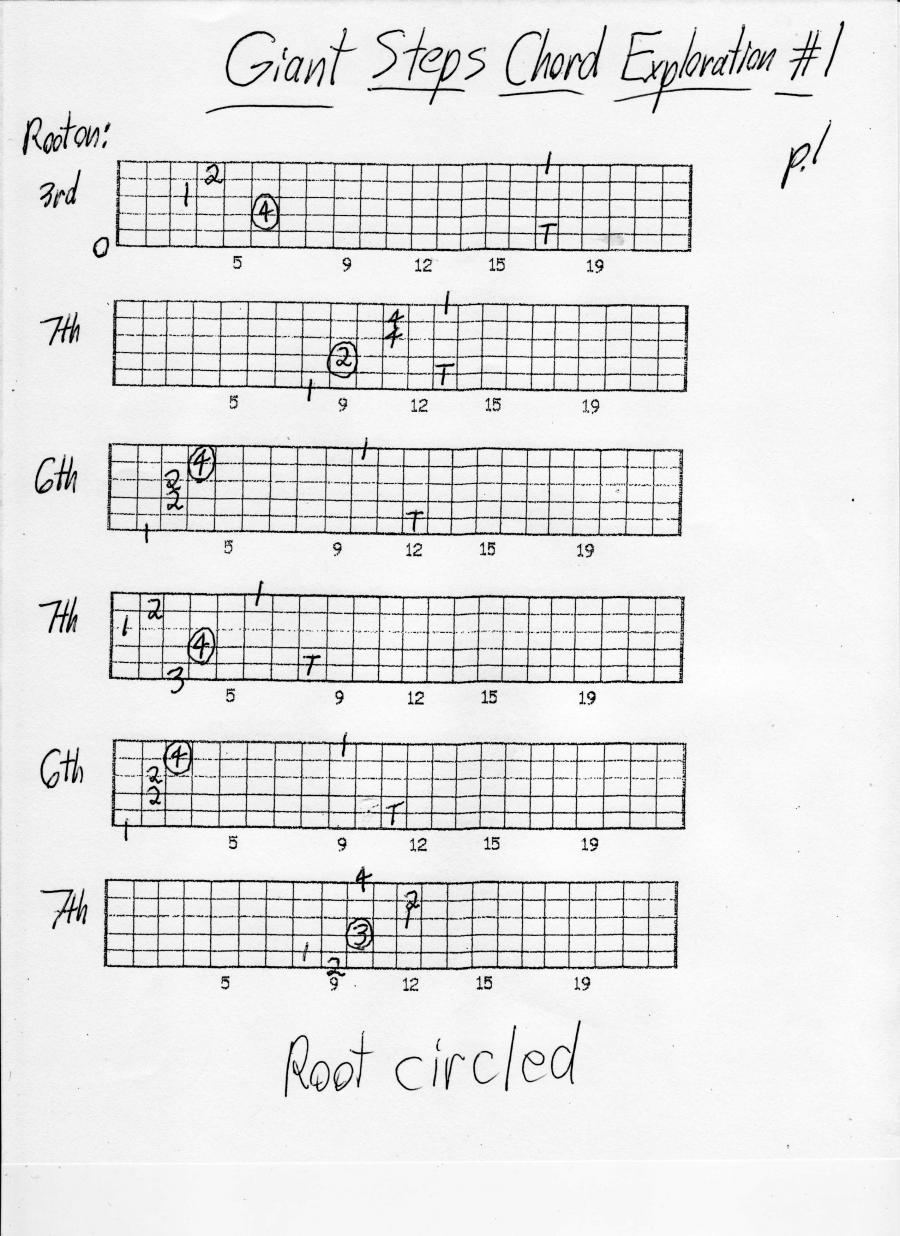 Giant Steps Chord Exploration #1
p.1
Root on:
3rd
1
2
1
4
T
0
5 9 12 15 19
7th
1
4
4
2
T
1
5 9 12 15 19
6th
1
4
2
2
T
1
5 9 12 15 19
7th
1
2
1
4
T
3
5 9 12 15 19
6th
1
4
2
2
T
1
5 9 12 15 19
7th
4
2
1
3
1
2
5 9 12 15 19
Root circled